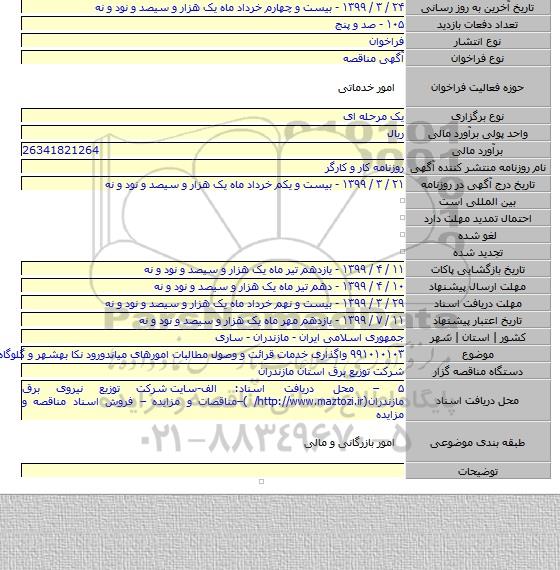 تاریخ آخرین به روز رسانی ۲۴ / ۳ / ۱۳۹۹ - بیست و چهارم خرداد ماه یک هزار و سیصد و نود و نه
تعداد دفعات بازدید ۱۰۵ - صد و پنج
نوع انتشار فراخوان
نوع فراخوان آگهی مناقصه
حوزه فعالیت فراخوان امور خدماتی
نوع برگزاری یک مرحله ای
واحد پولی برآورد مالی ریال
برآورد مالی 26341821264
نام روزنامه منتشر کننده آگهی روزنامه کار و کارگر
تاریخ درج آگهی در روزنامه ۲۱ / ۳ / ۱۳۹۹ - بیست و یکم خرداد ماه یک هزار و سیصد و نود و نه
بین المللی است
احتمال تمدید مهلت دارد
لغو شده
تجدید شده
تاریخ بازگشایی پاکات ۱۱ / ۴ / ۱۳۹۹ - یازدهم تیر ماه یک هزار و سیصد و نود و نه
مهلت ارسال پیشنهاد ۱۰ / ۴ / ۱۳۹۹ - دهم تیر ماه یک هزار و سیصد و نود و نه
مهلت دریافت اسناد ۲۹ / ۳ / ۱۳۹۹ - بیست و نهم خرداد ماه یک هزار و سیصد و نود و نه
تاریخ اعتبار پیشنهاد ۱۱ / ۷ / ۱۳۹۹ - یازدهم مهر ماه یک هزار و سیصد و نود و نه
کشور | استان | شهر جمهوری اسلامی ایران - مازندران - ساری
موضوع ۹۹۱۰۱۰۱۰۳ واگذاری خدمات قرائت و وصول مطالبات امورهای میاندورود نکا بهشهر و گلوگاه
دستگاه مناقصه گزار شرکت توزیع برق استان مازندران
محل دریافت اسناد ۵ – محل دریافت اسناد: الف-سایت شرکت توزیع نیروی برق
مازندران(http://www.maztozi.ir/ )–مناقصات و مزایده – فروش اسناد مناقصه و
مزایده
طبقه بندی موضوعی امور بازرگانی و مالی
توضیحات
۰۲۱-۸۸۳۴۹۶۷۰-۵